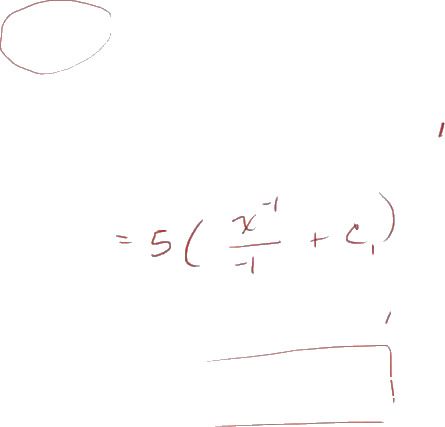 = 5( x⁻¹/-1 + C₁)